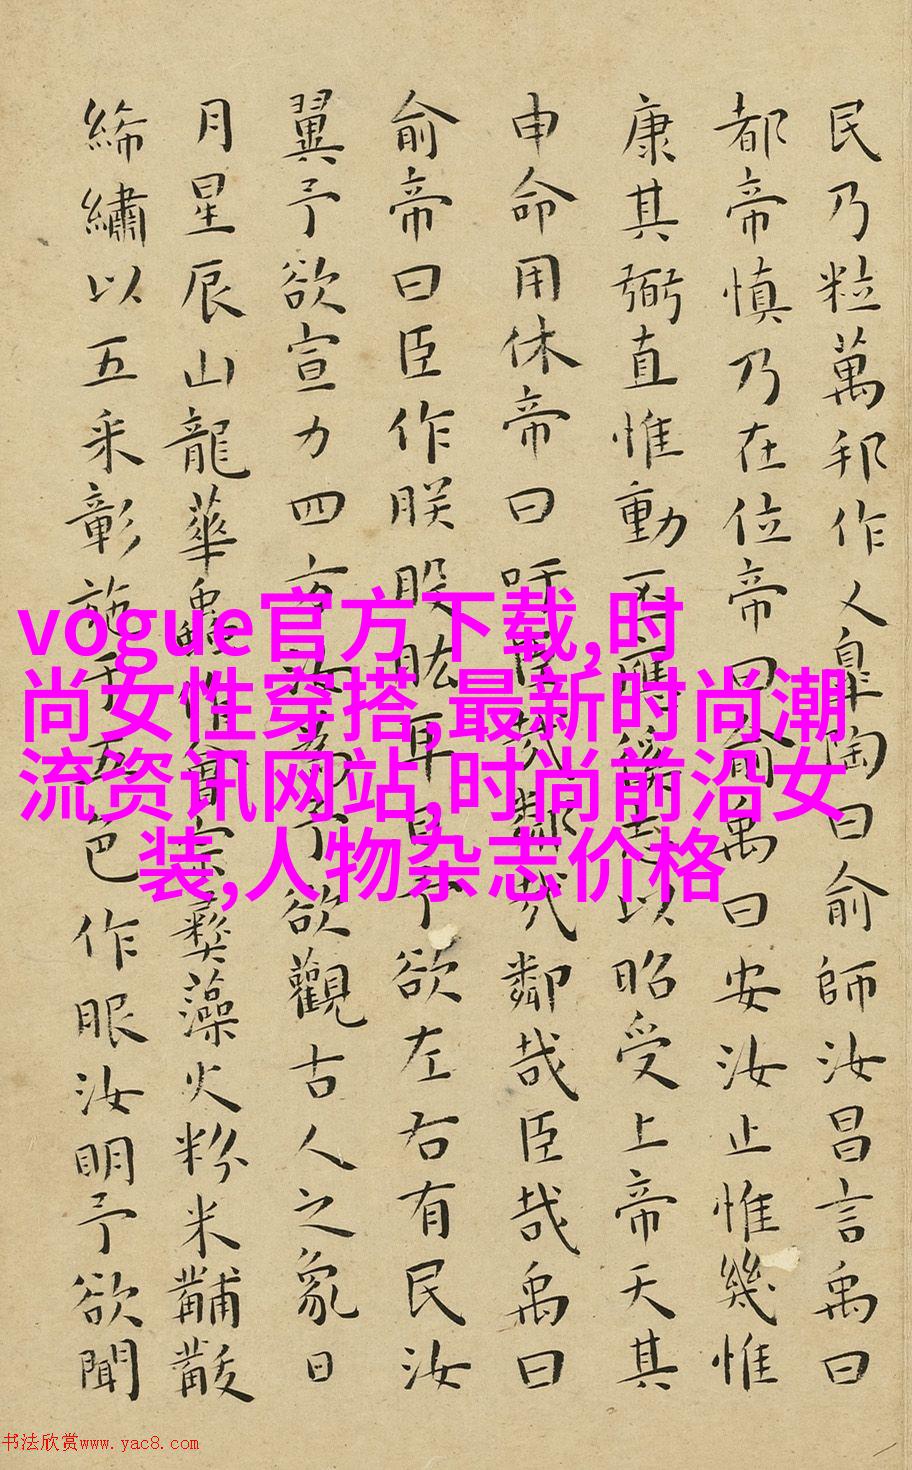 民乃粒萬邦作乂皐陶曰俞師汝昌言禹曰
都帝慎乃在位帝曰俞禹曰安汝止惟幾惟
康其弼直惟動丕應徯志以昭受上帝天其
申命用休帝曰吁臣哉鄰哉鄰哉臣哉禹曰
俞帝曰臣作朕股肱耳目予欲左右有民汝
翼予欲宣力四方汝為予欲觀古人之象日
月星辰山龍華蟲作會宗彝藻火粉米黼黻
絺繡以五采彰施于五色作服汝明予欲聞
vogue官方下载,时
尚女性穿搭,最新时尚潮
流资讯网站,时尚前沿女
装,人物杂志价格
书法欣赏www.yac8.com